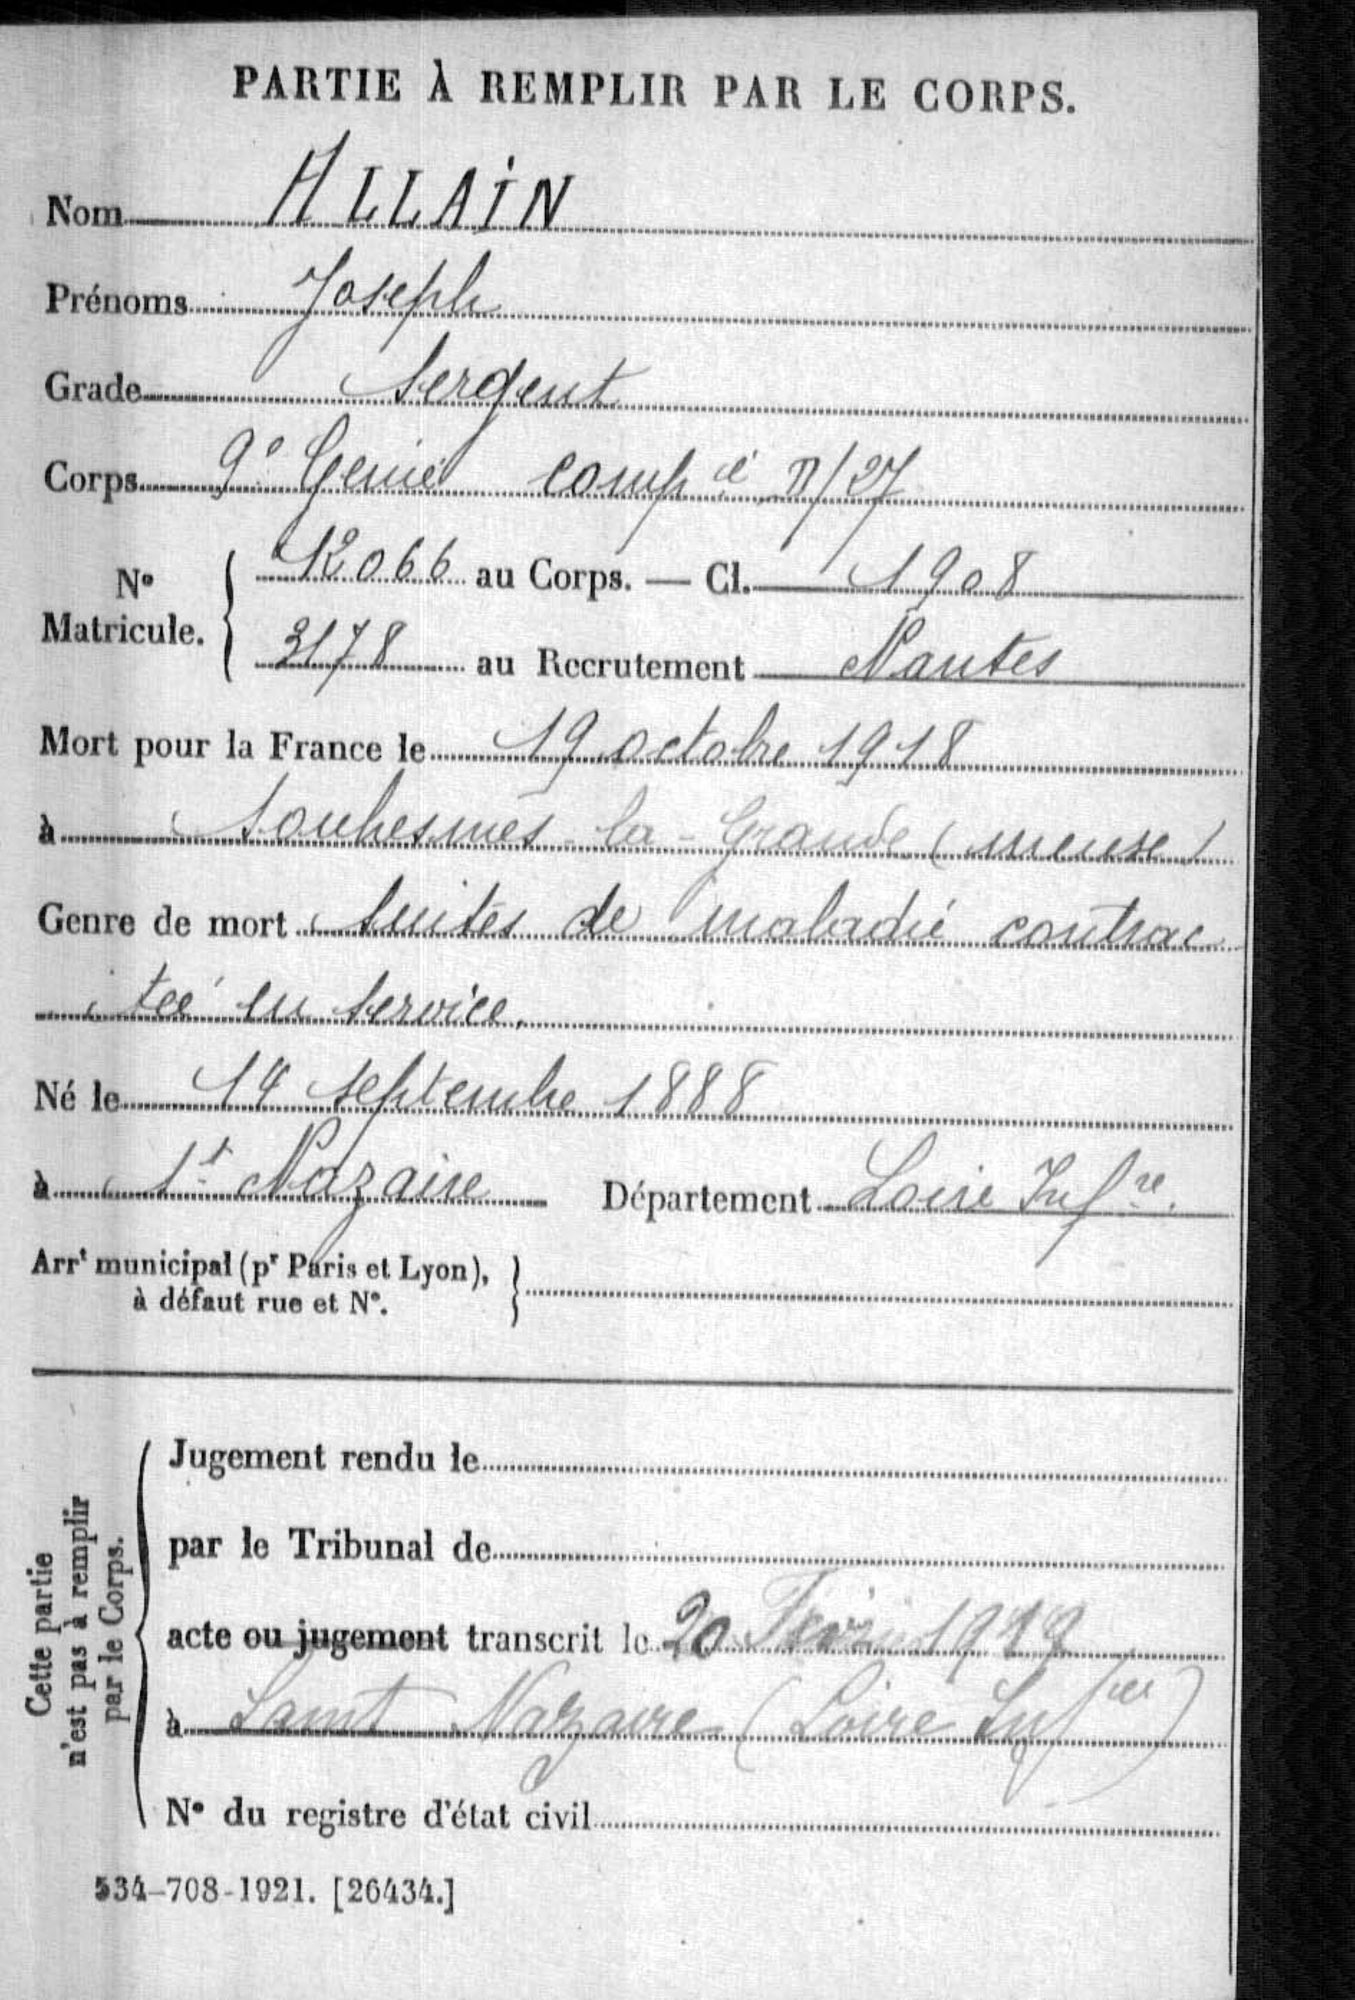 PARTIE À REMPLIR PAR LE CORPS.
Nom ALLAIN
Prénoms Joseph
Grade Sergent
Corps 9e Génie compie
12066 au Corps. — Cl. 1908
No Matricule.
3178 au Recrutement Nantes
Mort pour la France le 19 octobre 1918
à Souhesmes-la-Grande (Meuse)
Genre de mort Suites de maladie contrac
tée en service.
Né le 14 septembre 1888
à St Nazaire Département Loire Infre.
Arrt municipal (pr Paris et Lyon),
à défaut rue et No.
Cette partie
n'est pas à remplir
par le Corps.
Jugement rendu le
par le Tribunal de
acte ou jugement transcrit le 20 1919
à Saint Nazaire (Loire Infre)
No du registre d'état civil
534-708-1921. [26434.]